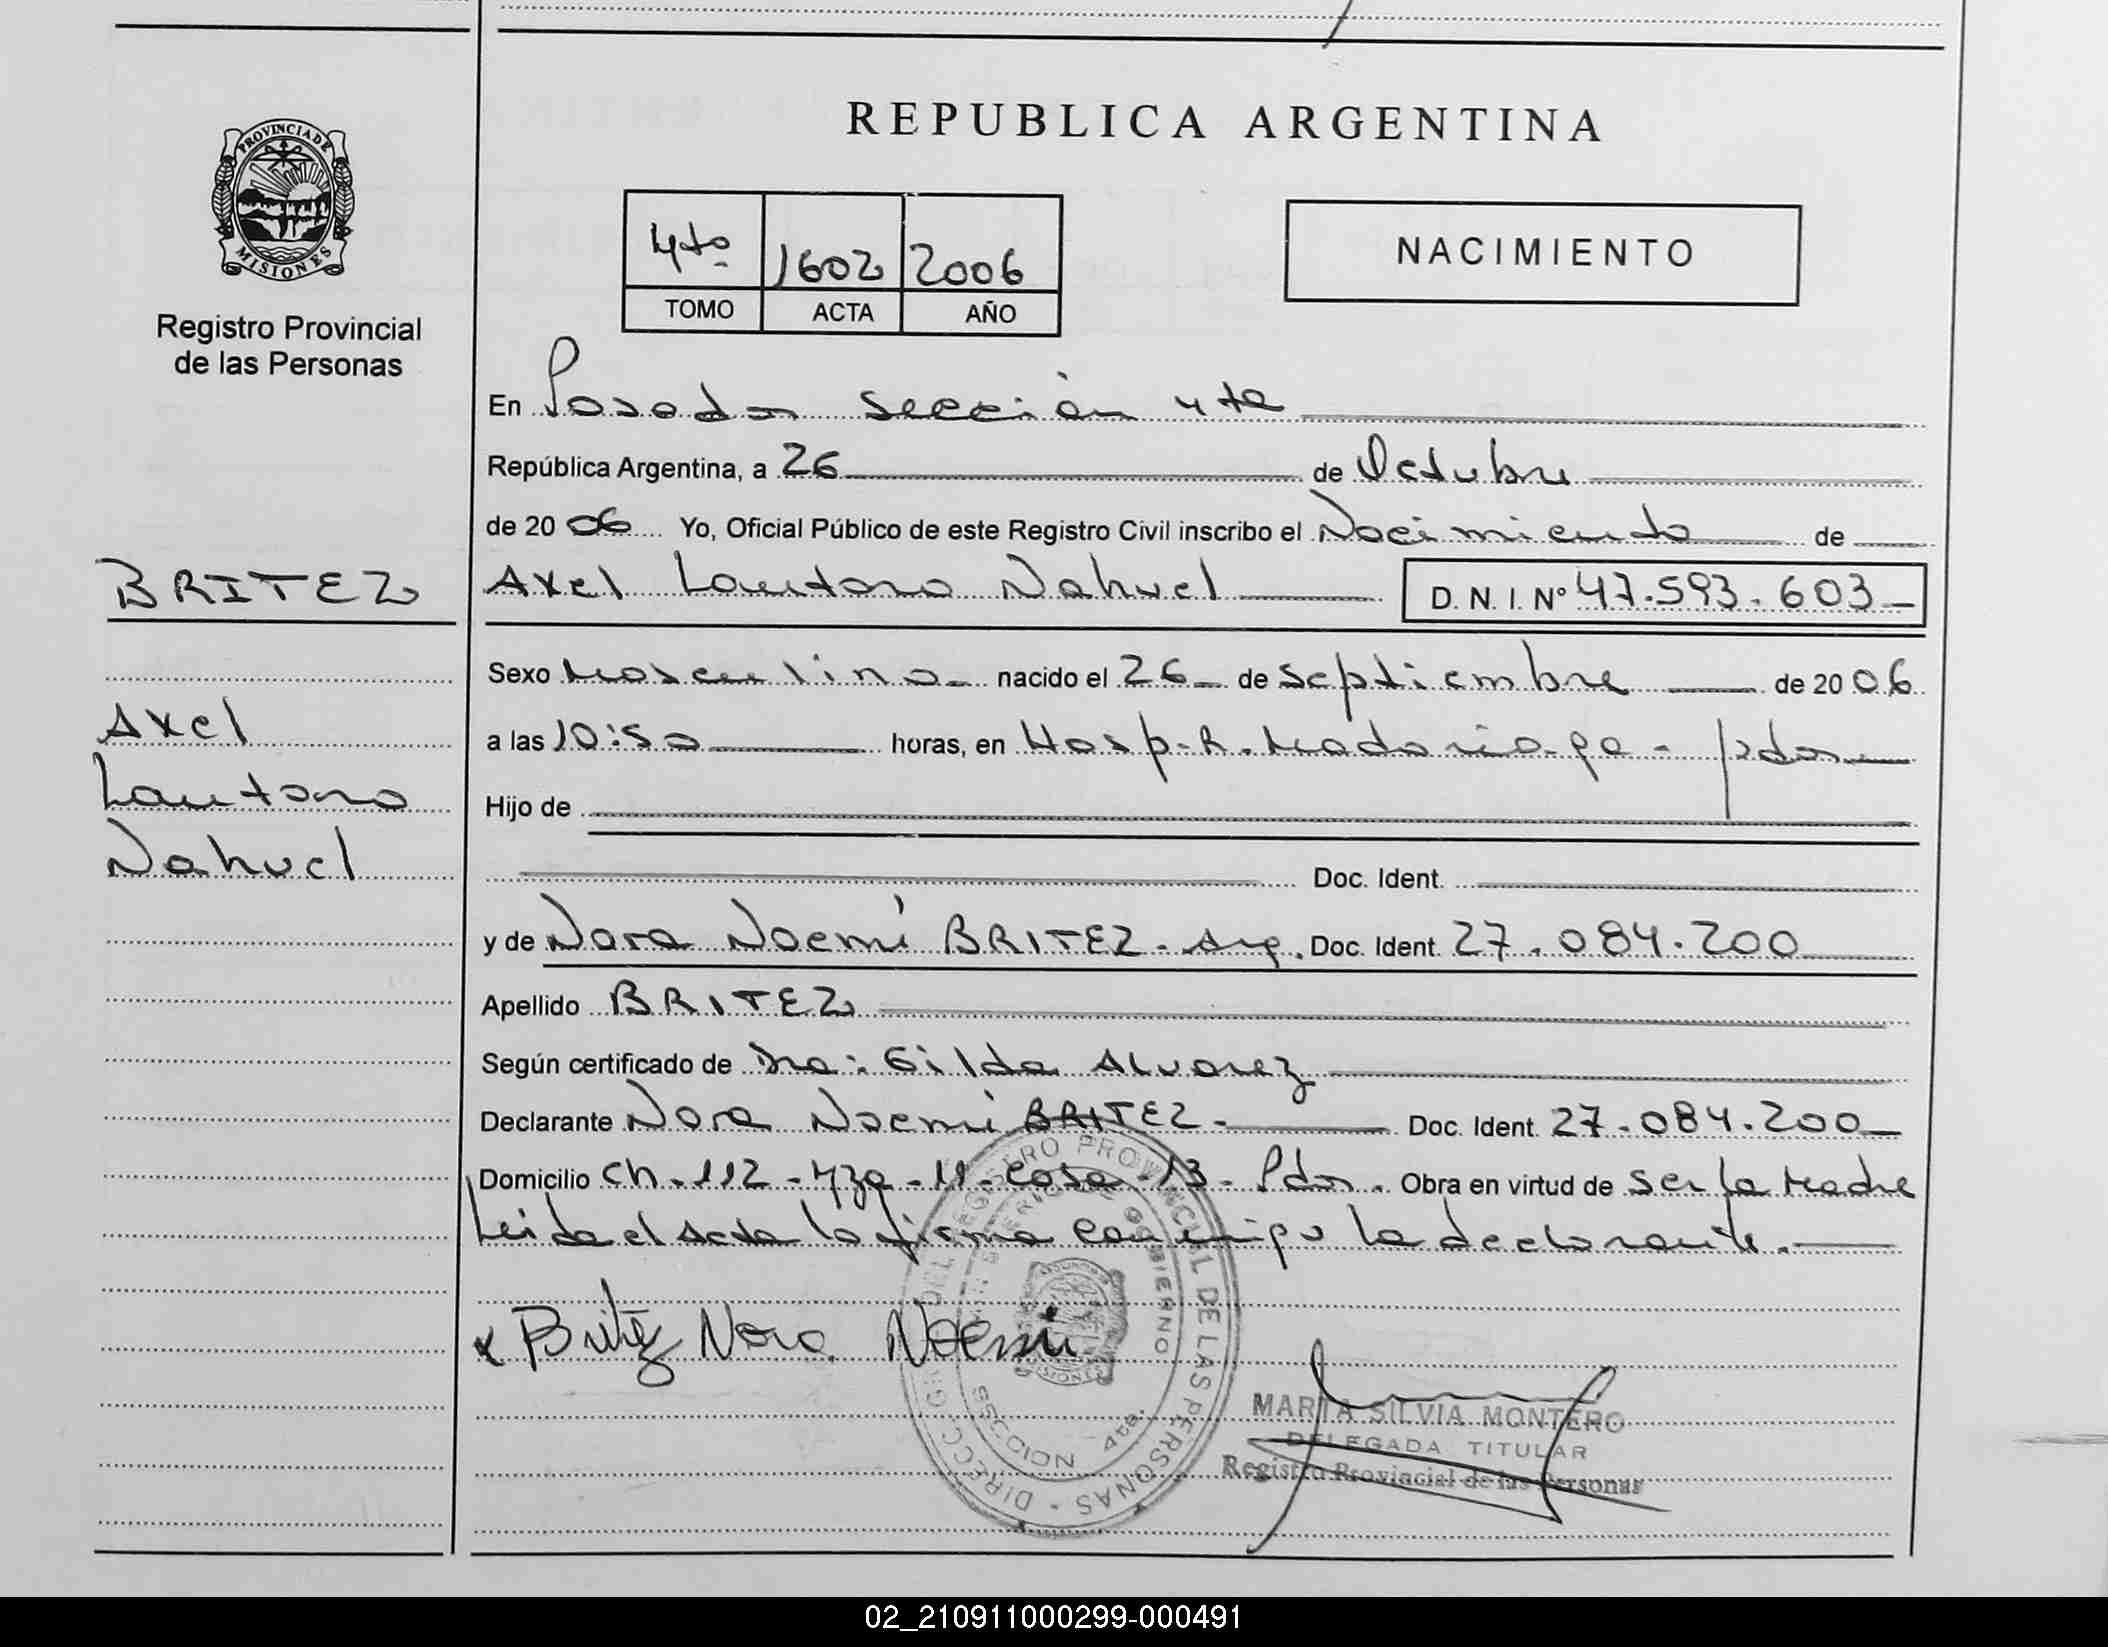 REPUBLICA ARGENTINA
PROVINCIA DE MISIONES
Registro Provincial
de las Personas
4to 1602 2006
TOMO ACTA AÑO
NACIMIENTO
En Posadas sección 4ta
República Argentina, a 26 de Octubre
de 20 06 Yo, Oficial Público de este Registro Civil inscribo el Nacimiento de
BRITEZ
Axel Lautaro Nahuel D. N. I. Nº 47.593.603
Axel
Lautaro
Nahuel
Sexo Masculino nacido el 26 de Septiembre de 20 06
a las 10:50 horas, en Hosp. R. Madariaga - Pdas
Hijo de
Doc. Ident.
y de Nora Noemí BRITEZ - Arg. Doc. Ident. 27.084.200
Apellido BRITEZ
Según certificado de Dra: Gilda Alvarez
Declarante Nora Noemi BRITEZ - Doc. Ident. 27.084.200
Domicilio Ch. 112 - Mza - 11 - Casa - 13 - Pdas. Obra en virtud de ser la Madre
Leida el Acta la firma conmigo la declarante.
x Britez Nora Noemi
DIRECC. GRAL. DEL REGISTRO PROVINCIAL DE LAS PERSONAS
MINISTERIO DE GOBIERNO
SECCION 4ta.
MARTA SILVIA MONTERO
DELEGADA TITULAR
Registro Provincial de las Personas
02_210911000299-000491